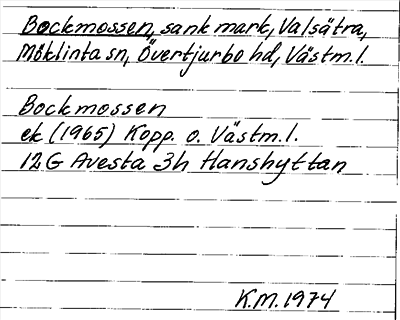 Bockmossen, sank mark, Valsätra,
Möklinta sn, Övertjurbo hd, Västm. l.
Bockmossen
ek (1965) Kopp. o. Västm. l.
12G Avesta 3h Hanshyttan
K.M. 1974